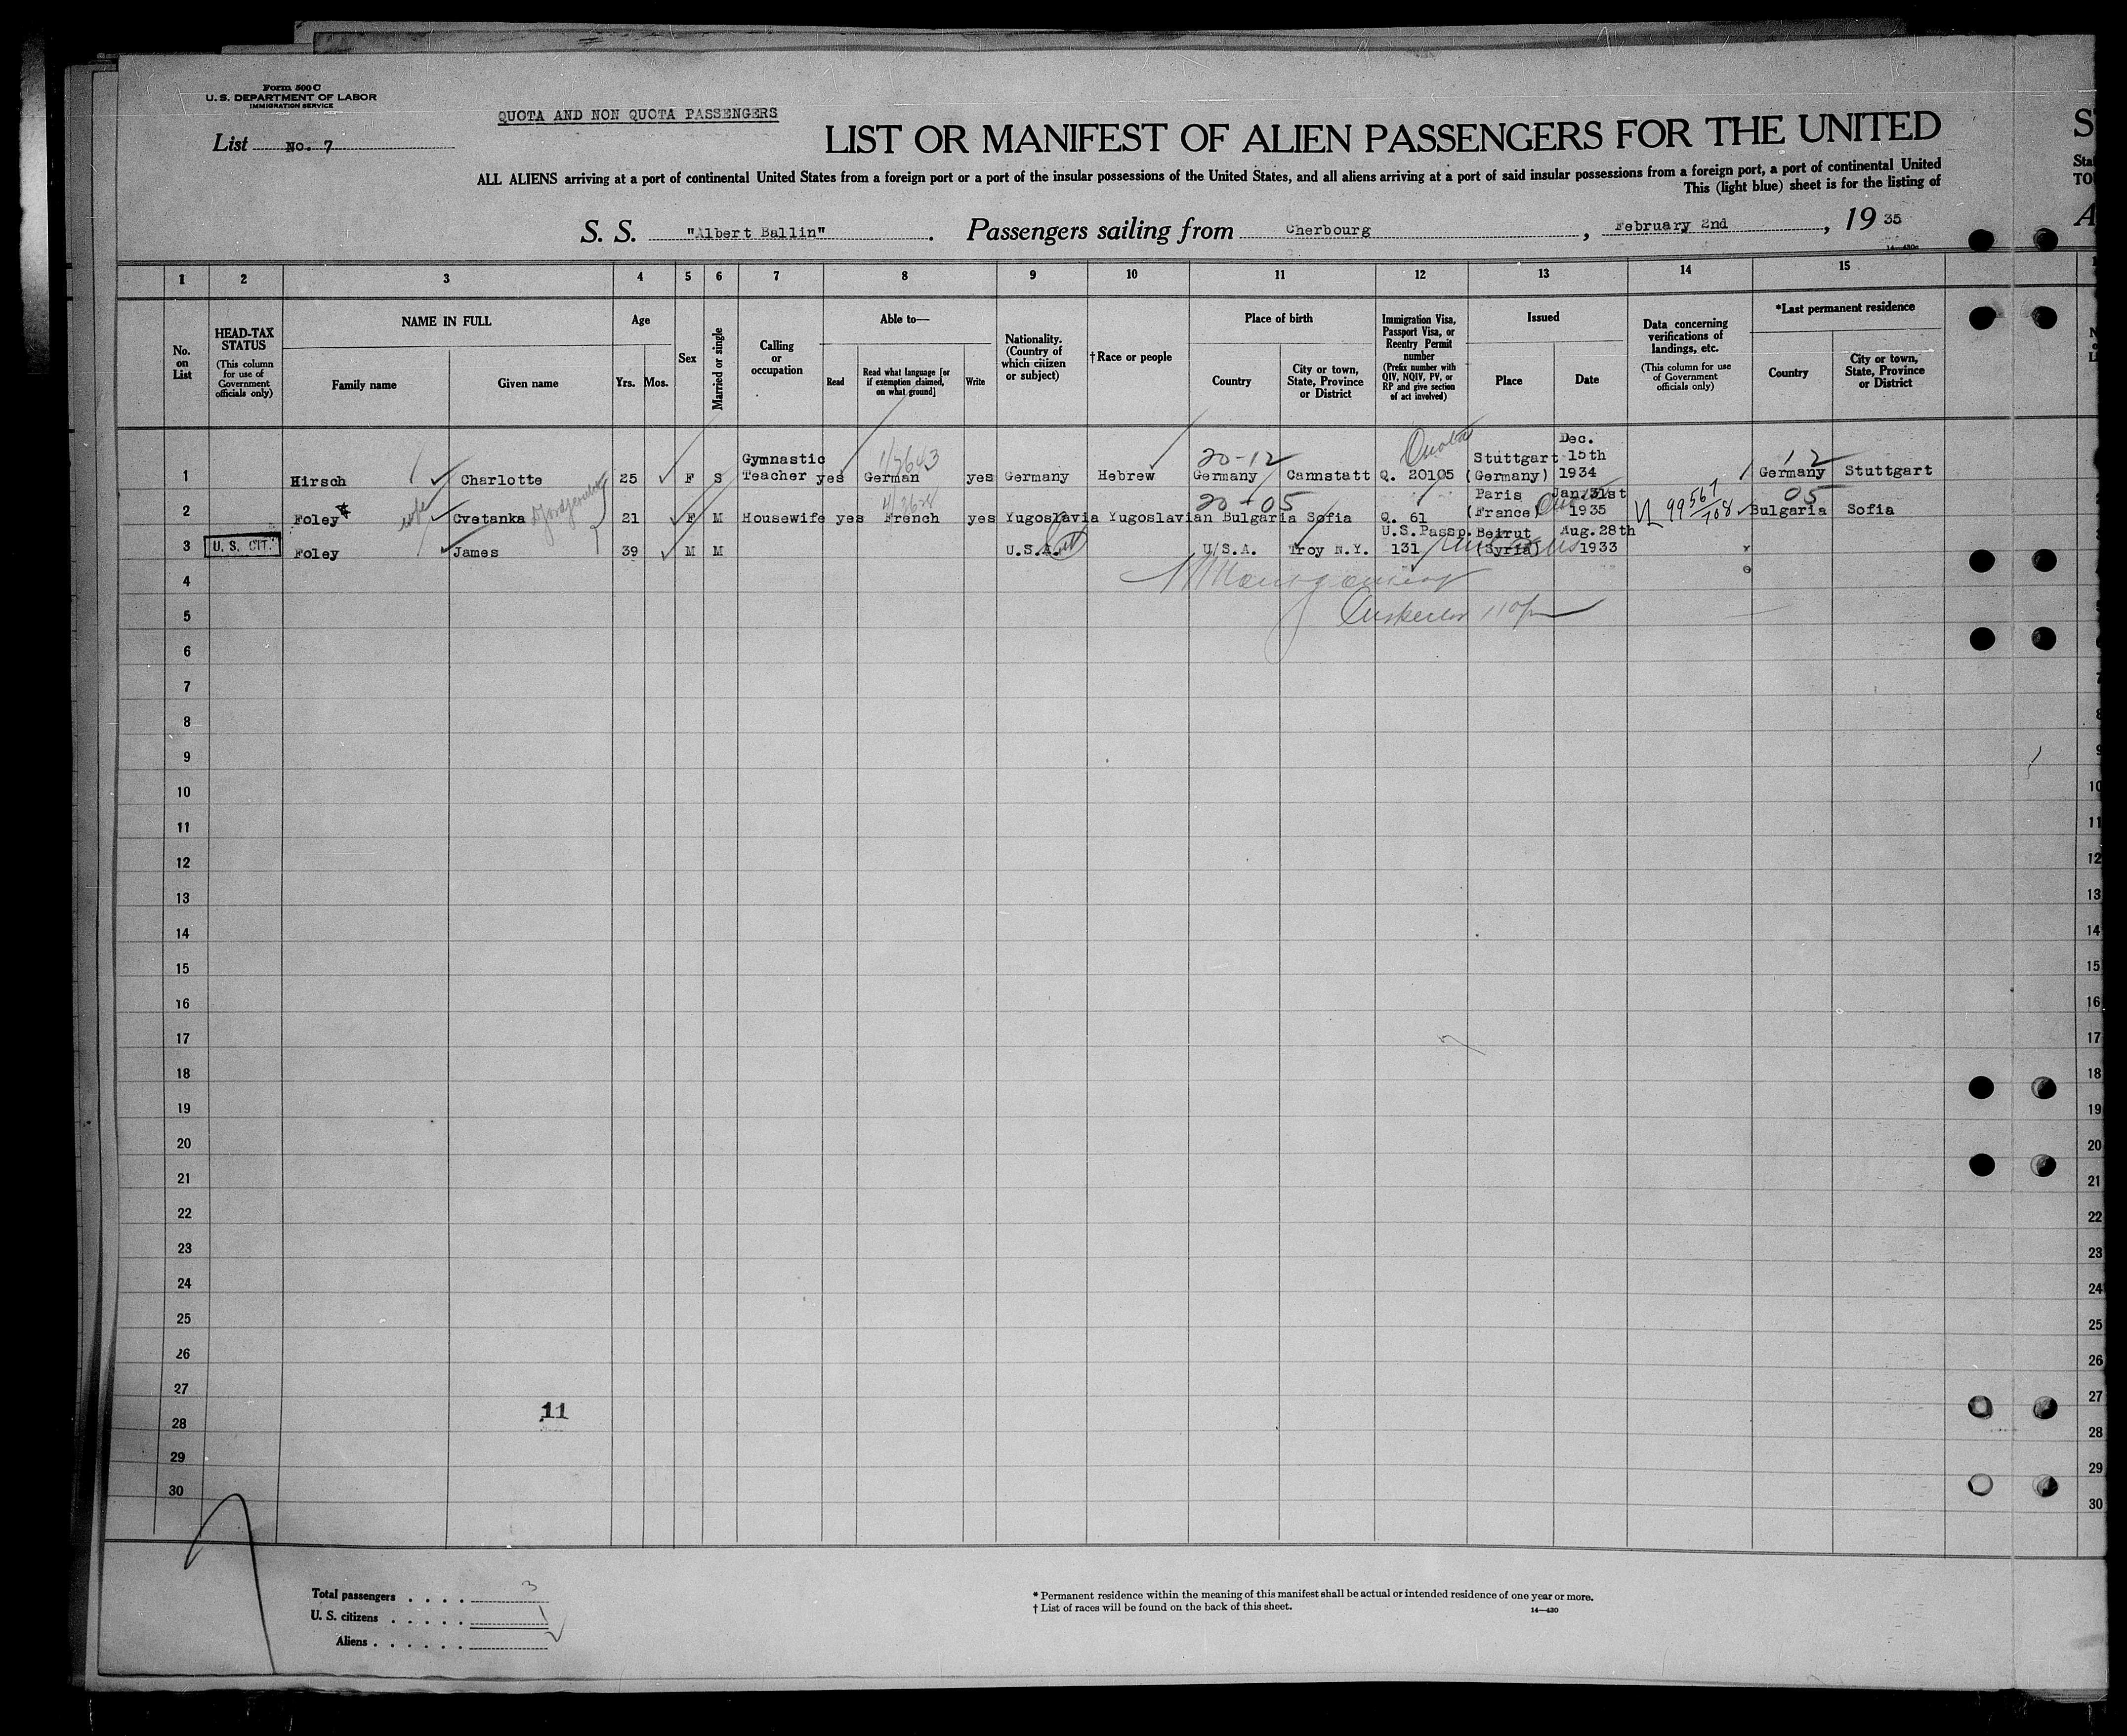 Form 500 C
U. S. DEPARTMENT OF LABOR
IMMIGRATION SERVICE
List No. 7
QUOTA AND NON QUOTA PASSENGERS
LIST OR MANIFEST OF ALIEN PASSENGERS FOR THE UNITED
ALL ALIENS arriving at a port of continental United States from a foreign port or a port of the insular possessions of the United States, and all aliens arriving at a port of said insular possessions from a foreign port, a port of continental United
This (light blue) sheet is for the listing of
S. S. "Albert Ballin". Passengers sailing from Cherbourg, February 2nd, 1935
14—430c
1 2 3 4 5 6 7 8 9 10 11 12 13 14 15
No. on List
HEAD-TAX STATUS
(This column for use of Government officials only)
NAME IN FULL
Family name
Given name
Age
Yrs. Mos.
Sex
Married or single
Calling or occupation
Able to—
Read
Read what language [or if exemption claimed, on what ground]
Write
Nationality. (Country of which citizen or subject)
†Race or people
Place of birth
Country
City or town, State, Province or District
Immigration Visa, Passport Visa, or Reentry Permit number
(Prefix number with QIV, NQIV, PV, or RP and give section of act involved)
Issued
Place
Date
Data concerning verifications of landings, etc.
(This column for use of Government officials only)
*Last permanent residence
Country
City or town, State, Province or District
1 Hirsch Charlotte 25 F S Gymnastic Teacher yes German yes Germany Hebrew 20-12 Germany Cannstatt Quota Q. 20105 Stuttgart (Germany) Dec. 15th 1934 12 Germany Stuttgart
2 Foley Cvetanka 21 F M Housewife yes French yes Yugoslavia Yugoslavian 20-05 Bulgaria Sofia Q. 61 Paris (France) Jan. 31st 1935 VL 99 567/708 05 Bulgaria Sofia
3 U. S. CIT. Foley James 39 M M U.S.A. U.S.A. Troy N.Y. U.S. Passp. 131 Beirut (Syria) Aug. 28th 1933
4
5 Inspector 110
6
7
8
9
10
11
12
13
14
15
16
17
18
19
20
21
22
23
24
25
26
27
11
28
29
30
Total passengers . . . . 3
U. S. citizens . . . . . 1
Aliens . . . . . . 2
* Permanent residence within the meaning of this manifest shall be actual or intended residence of one year or more.
† List of races will be found on the back of this sheet.
14—430